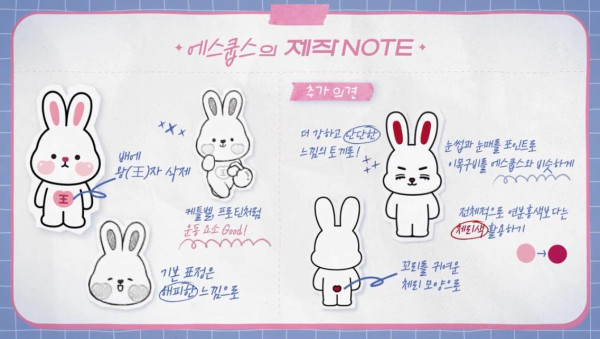 에스쿱스의 제작 NOTE
배에
왕(王)자 삭제
王
케틀벨, 프로틴처럼
운동 요소 Good!
기본 표정은
해피한 느낌으로
추가 의견
더 강하고 단단한
느낌의 토끼로!
눈썹과 눈매를 포인트로
이목구비를 에스쿱스와 비슷하게
전체적으로 연분홍색보다는
체리색 활용하기
꼬리를 귀여운
체리 모양으로